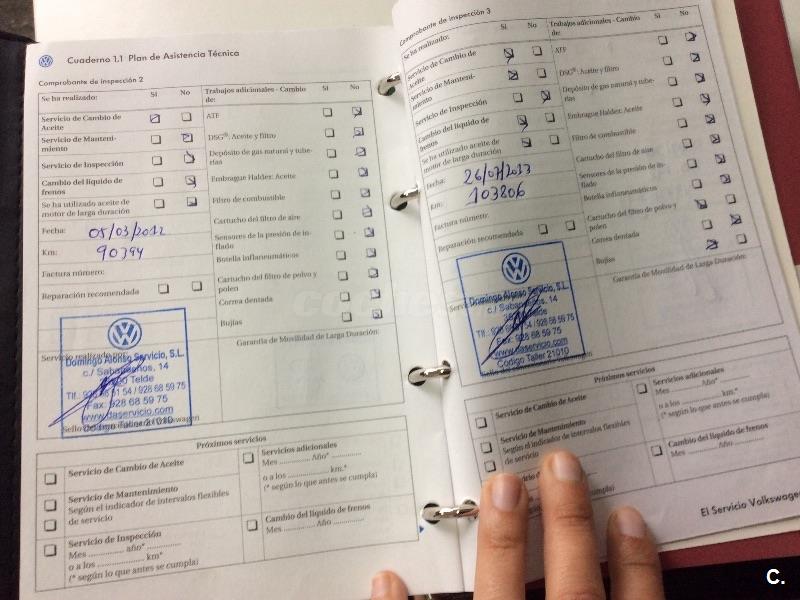 Cuaderno 1.1 Plan de Asistencia Técnica
Comprobante de inspección 2
Se ha realizado: Si No
Servicio de Cambio de
Aceite
Servicio de Manteni-
miento
Servicio de Inspección
Cambio del líquido de
frenos
Se ha utilizado aceite de
motor de larga duración
Fecha: 05/03/2012
Km: 90394
Factura número:
Reparación recomendada
Trabajos adicionales - Cambio
de: Si No
ATF
DSG®: Aceite y filtro
Depósito de gas natural y tube-
rías
Embrague Haldex: Aceite
Filtro de combustible
Cartucho del filtro de aire
Sensores de la presión de in-
flado
Botella inflaneumáticos
Cartucho del filtro de polvo y
polen
Correa dentada
Bujías
Garantía de Movilidad de Larga Duración:
Servicio realizado por:
Domingo Alonso Servicio, S.L.
c./ Sabandeños, 14
Telde
928 68 59 75
Fax: 928 68 59 75
www.daservicio.com
Código Taller 21010
Próximos servicios
Servicio de Cambio de Aceite
Servicio de Mantenimiento
Según el indicador de intervalos flexibles
de servicio
Servicio de Inspección
Mes ............... año* ...............
o a los ............... km*
(* según lo que antes se cumpla)
Servicios adicionales
Mes ............ Año* ............
o a los ............... km.*
(* según lo que antes se cumpla)
Cambio del líquido de frenos
Mes ............ Año ............
Comprobante de inspección 3
Se ha realizado: Si No
Servicio de Cambio de
Aceite
Servicio de Manteni-
miento
Servicio de Inspección
Cambio del líquido de
frenos
Se ha utilizado aceite de
motor de larga duración
Fecha: 26/07/2013
Km: 103206
Factura número:
Reparación recomendada
Trabajos adicionales - Cambio
de: Si No
ATF
DSG®: Aceite y filtro
Depósito de gas natural y tube-
rías
Embrague Haldex: Aceite
Filtro de combustible
Cartucho del filtro de aire
Sensores de la presión de in-
flado
Botella inflaneumáticos
Cartucho del filtro de polvo y
polen
Correa dentada
Bujías
Garantía de Movilidad de Larga Duración:
Domingo Alonso Servicio, S.L.
c./ Sabandeños, 14
Telde
928 68 59 75
Fax: 928 68 59 75
www.daservicio.com
Código Taller 21010
Próximos servicios
Servicio de Cambio de Aceite
Servicio de Mantenimiento
Según el indicador de intervalos flexibles
de servicio
Servicios adicionales
Mes ............ Año* ............
o a los ............... km.*
(* según lo que antes se cumpla)
Cambio del líquido de frenos
Mes ............ Año ............
El Servicio Volkswagen
C.